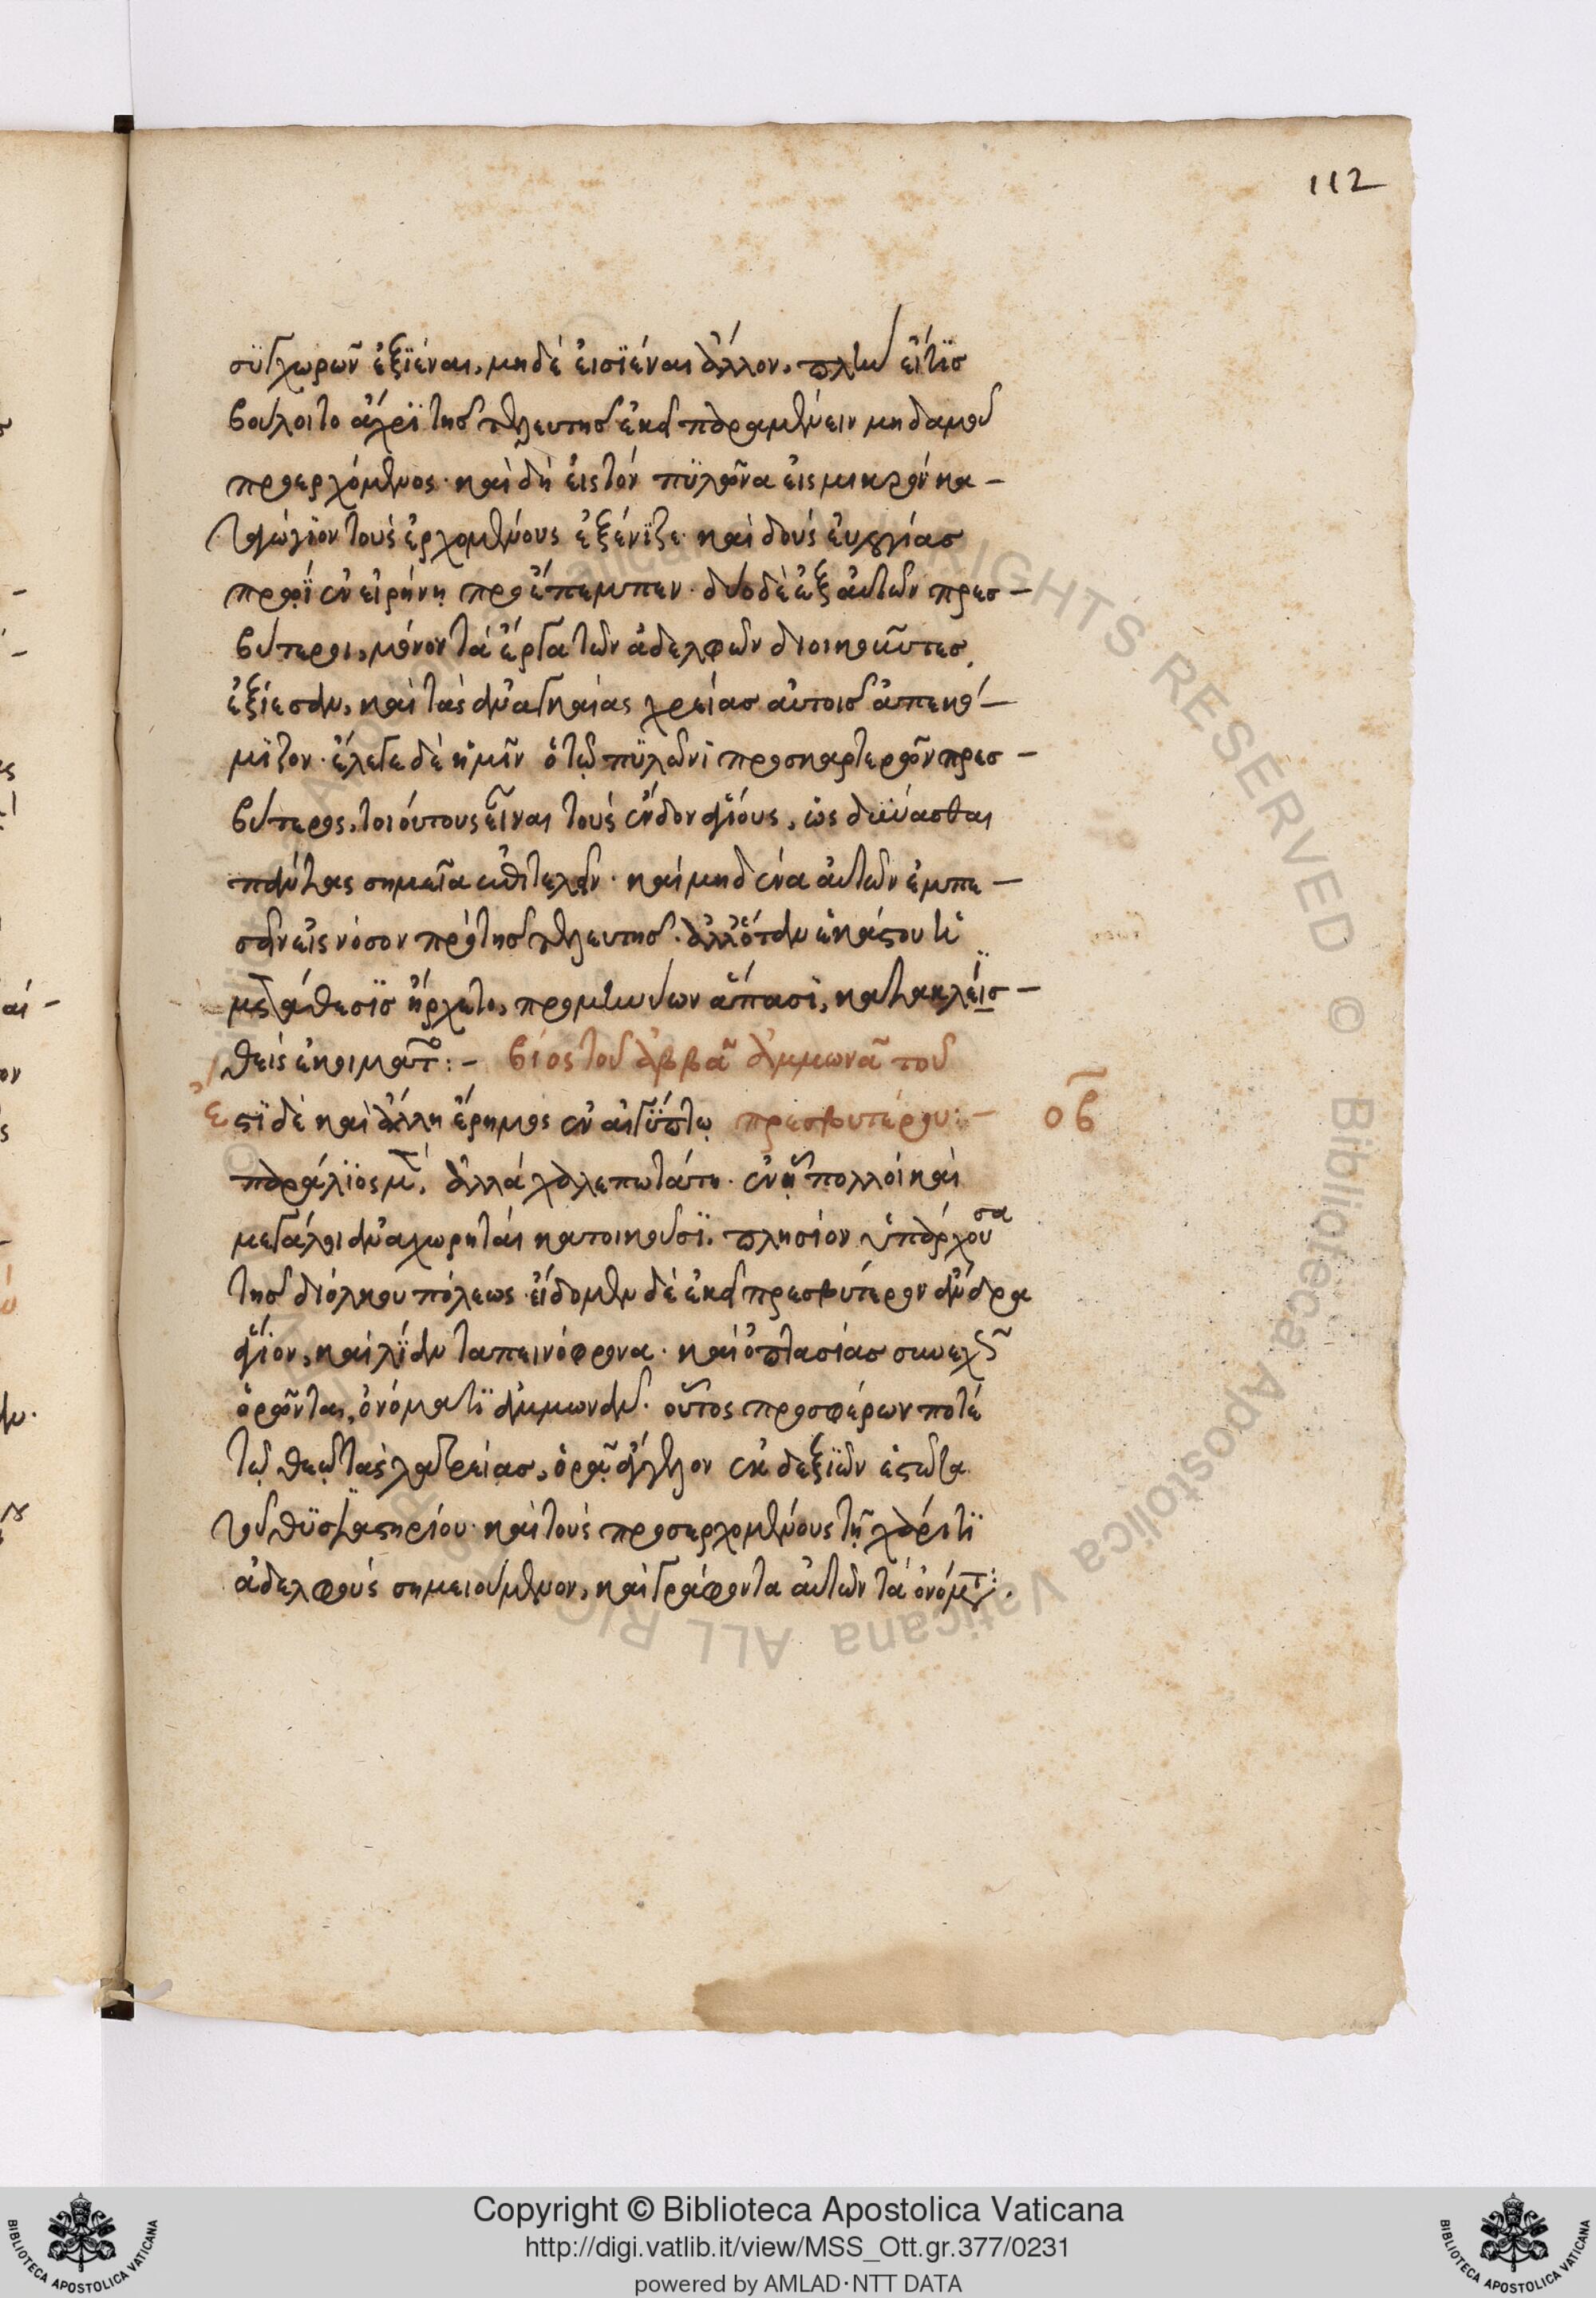 112
συγχωρῶν ἐξϊέναι, μηδὲ εἰσϊέναι ἄλλον, πλὴν εἴ τϊς
βούλοιτο ἄχρϊ τῆς τελευτῆς ἐκεῖ παραμένειν μηδαμοῦ
προερχόμενος· καὶ δὴ εἰς τὸν πϋλῶνα εἰς μικρὸν κα-
ταγώγϊον τοὺς ἐρχομένους ἐξένϊζε· καὶ δοὺς εὐλογίας
πρωῒ ἐν εἰρήνῃ προέπεμπεν· δύο δὲ ἐξ αὐτῶν πρεσ-
βύτεροι, μόνον τὰ ἔργα τῶν ἀδελφῶν διοικοῦντες
ἐξίεσαν, καὶ τὰς ἀναγκαίας χρείας αὐτοῖς ἀπεκό-
μϊζον· ἔλεγε δὲ ἡμῖν ὁ τῷ πϋλῶνϊ προσκαρτερῶν πρεσ-
βύτερος, τοιούτους εἶναι τοὺς ἔνδον ἁγίους, ὡς δύνασθαι
πάντας σημεῖα ἐπιτελεῖν· καὶ μηδένα αὐτῶν ἐμπε-
σεῖν εἰς νόσον πρὸ τῆς τελευτῆς· ἀλλ' ὅταν ἑκάστου ἡ
μετάθεσϊς ἤρχετο, προμηνύων ἅπασϊ, κατακλεϊσ-
θεὶς ἐκοιμᾶτο:- βίος τοῦ ἀββᾶ ἀμμωνᾶ τοῦ
ἔστϊ δὲ καὶ ἄλλη ἔρημος ἐν αἰγύπτῳ πρεσβυτέρου:- οβ
παράλϊος μέν, ἀλλὰ χαλεπωτάτη· ἐν ᾗ πολλοὶ καὶ
μεγάλοι ἀναχωρηταὶ κατοικοῦσϊ· πλησίον ὑπάρχουσα
τῆς διόλκου πόλεως· εἴδομεν δὲ ἐκεῖ πρεσβύτερον ἄνδρα
ἅγϊον, καὶ λϊὰν ταπεινόφρονα· καὶ ὀπτασίας συνεχῶς
ὁρῶντα, ὀνόματϊ ἀμμωνᾶν· οὗτος προσφέρων ποτὲ
τῷ θεῷ τὰς λατρείας, ὁρᾷ ἄγγελον ἐκ δεξϊῶν ἑστῶτα
τοῦ θϋσϊαστηρίου· καὶ τοὺς προσερχομένους τῇ χάριτϊ
ἀδελφοὺς σημειούμενον, καὶ γράφοντα αὐτῶν τὰ ὀνόματα·
RIGHTS RESERVED © Biblioteca Apostolica Vaticana ALL RIGHTS
Copyright © Biblioteca Apostolica Vaticana
http://digi.vatlib.it/view/MSS_Ott.gr.377/0231
powered by AMLAD·NTT DATA
BIBLIOTECA APOSTOLICA VATICANA
BIBLIOTECA APOSTOLICA VATICANA